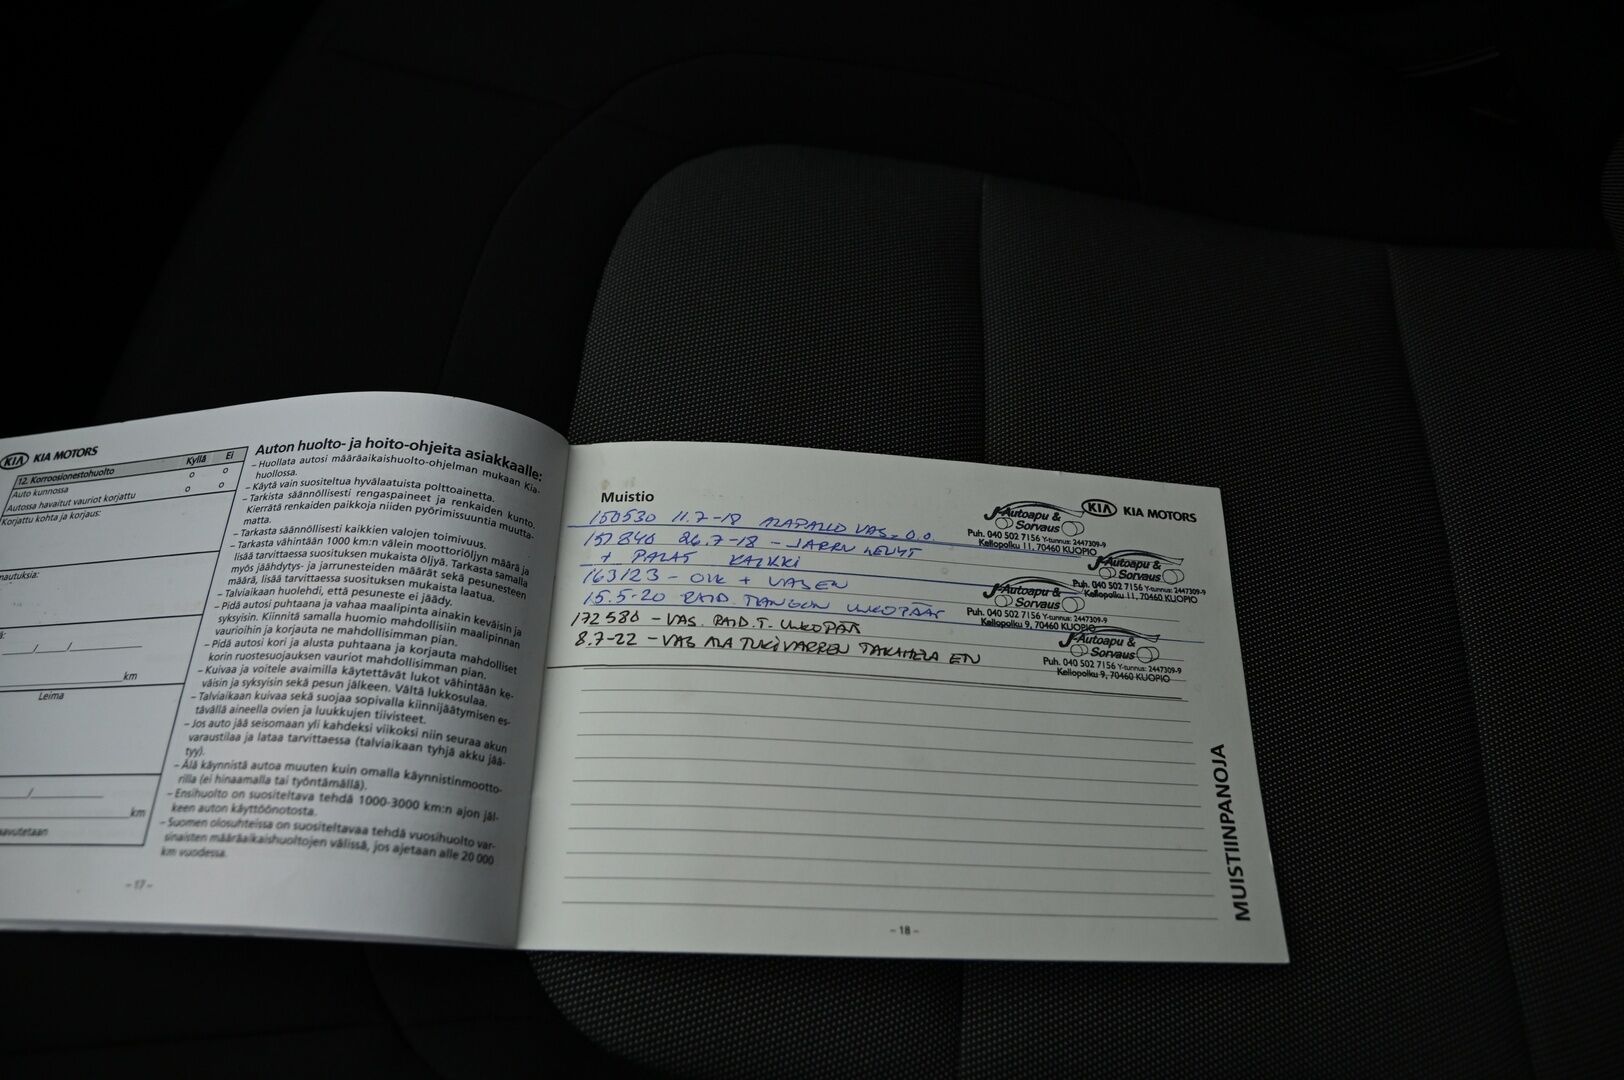 KIA KIA MOTORS
12. Korroosionestohuolto Kyllä Ei
Auto kunnossa o o
Autossa havaitut vauriot korjattu o o
Korjattu kohta ja korjaus:
/ /
km
Leima
/
km
- 17 -
Auton huolto- ja hoito-ohjeita asiakkaalle:
– Huollata autosi määräaikaishuolto-ohjelman mukaan Kia-
huollossa.
– Käytä vain suositeltua hyvälaatuista polttoainetta.
– Tarkista säännöllisesti rengaspaineet ja renkaiden kunto.
Kierrätä renkaiden paikkoja niiden pyörimissuuntia muutta-
matta.
– Tarkasta säännöllisesti kaikkien valojen toimivuus.
– Tarkasta vähintään 1000 km:n välein moottoriöljyn määrä ja
lisää tarvittaessa suosituksen mukaista öljyä. Tarkasta samalla
myös jäähdytys- ja jarrunesteiden määrät sekä pesunesteen
määrä, lisää tarvittaessa suosituksen mukaista laatua.
– Talviaikaan huolehdi, että pesuneste ei jäädy.
– Pidä autosi puhtaana ja vahaa maalipinta ainakin keväisin ja
syksyisin. Kiinnitä samalla huomio mahdollisiin maalipinnan
vaurioihin ja korjauta ne mahdollisimman pian.
– Pidä autosi kori ja alusta puhtaana ja korjauta mahdolliset
korin ruostesuojauksen vauriot mahdollisimman pian.
– Kuivaa ja voitele avaimilla käytettävät lukot vähintään ke-
väisin ja syksyisin sekä pesun jälkeen. Vältä lukkosulaa.
– Talviaikaan kuivaa sekä suojaa sopivalla kiinnijäätymisen es-
tävällä aineella ovien ja luukkujen tiivisteet.
– Jos auto jää seisomaan yli kahdeksi viikoksi niin seuraa akun
varaustilaa ja lataa tarvittaessa (talviaikaan tyhjä akku jää-
tyy).
– Älä käynnistä autoa muuten kuin omalla käynnistinmootto-
rilla (ei hinaamalla tai työntämällä).
– Ensihuolto on suositeltava tehdä 1000-3000 km:n ajon jäl-
keen auton käyttöönotosta.
– Suomen olosuhteissa on suositeltavaa tehdä vuosihuolto var-
sinaisten määräaikaishuoltojen välissä, jos ajetaan alle 20 000
km vuodessa.
Muistio
KIA KIA MOTORS
150530 11.7-18 ALAPALLO VAS. O.O.
151840 26.7-18 - JARRU LEVYT
+ PALAT KAIKKI
163123 - OIK + VASEN
15.5-20 RAID. TANGON ULKOPÄÄT
172580 - VAS. RAID.T. ULKOPÄÄ
8.7-22 - VAS ALATUKIVARREN TAKAHELA ETU
J-Autoapu &
Sorvaus
Puh. 040 502 7156 Y-tunnus: 2447309-9
Kellopolku 11, 70460 KUOPIO
J-Autoapu &
Sorvaus
Puh. 040 502 7156 Y-tunnus: 2447309-9
Kellopolku 11, 70460 KUOPIO
J-Autoapu &
Sorvaus
Puh. 040 502 7156 Y-tunnus: 2447309-9
Kellopolku 9, 70460 KUOPIO
J-Autoapu &
Sorvaus
Puh. 040 502 7156 Y-tunnus: 2447309-9
Kellopolku 9, 70460 KUOPIO
MUISTIINPANOJA
- 18 -